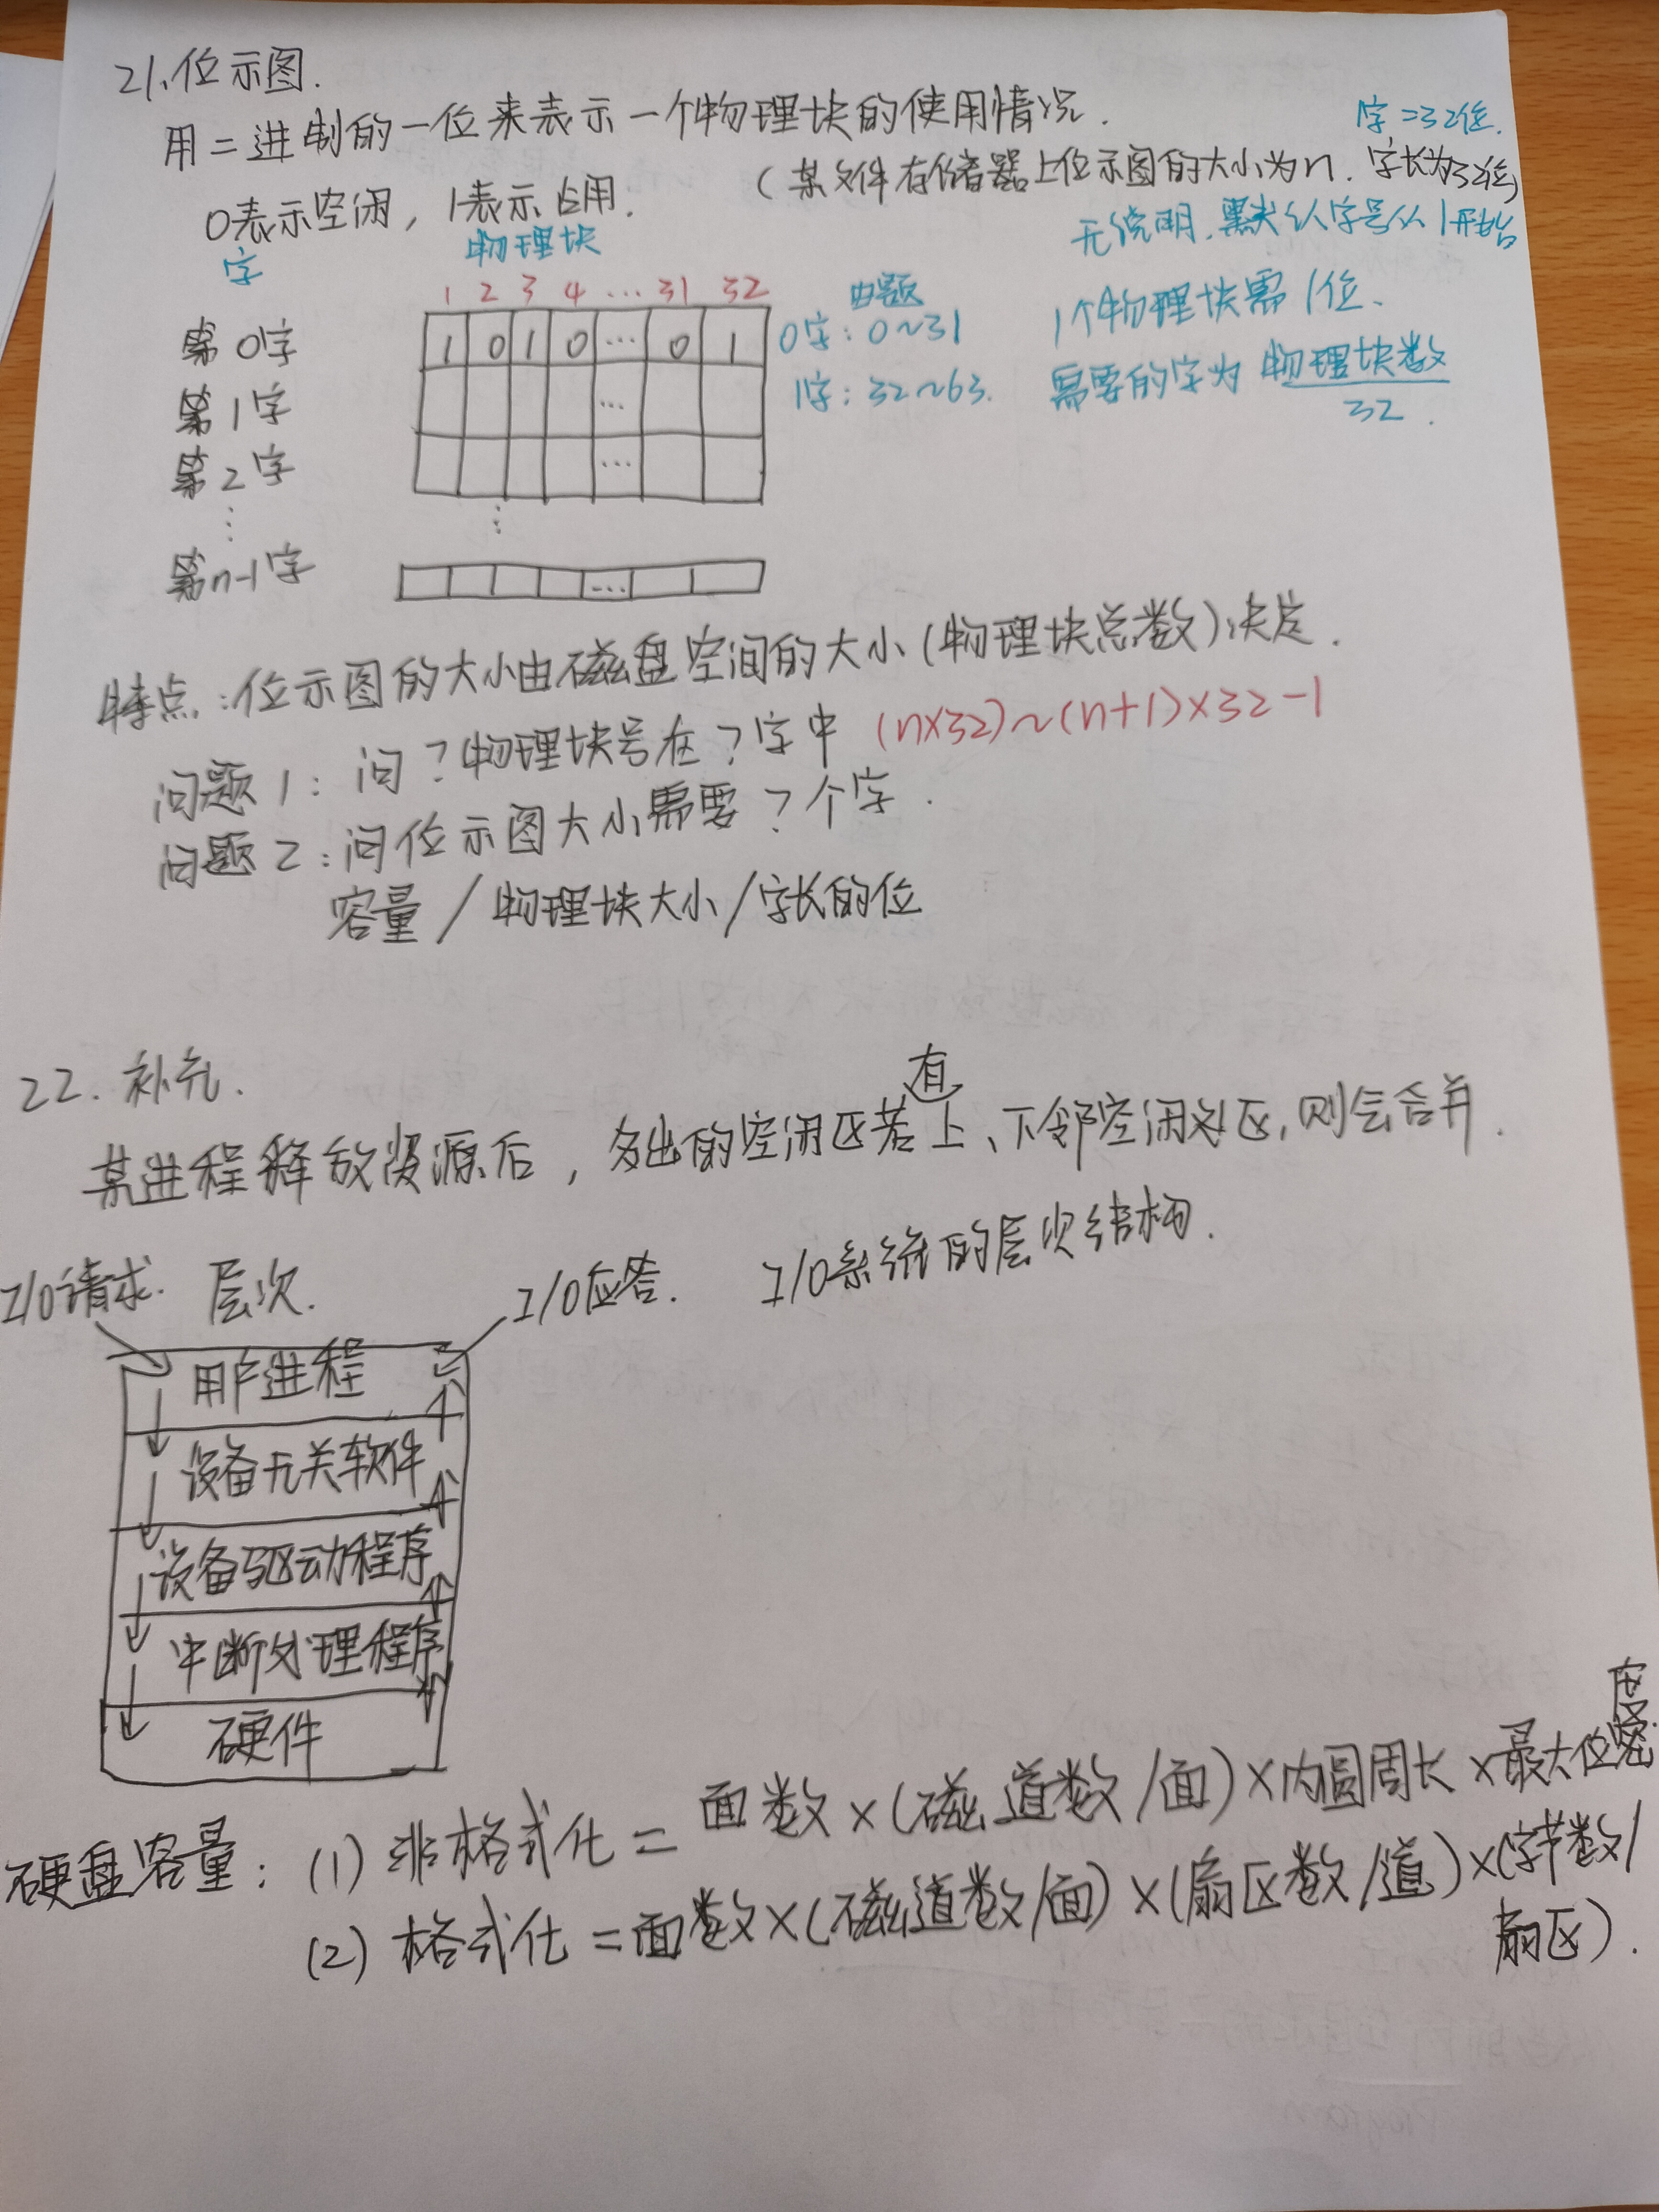 21、位示图.
用二进制的一位来表示一个物理块的使用情况.
字=32位.
0表示空闲，1表示占用.
(某文件存储器上位示图的大小为n. 字长为32位)
无说明,默认字号从1开始
字
物理块
1 2 3 4 … 31 32
由题
第0字
1 0 1 0 … 0 1
0字: 0~31
1个物理块需1位、
第1字
…
1字: 32~63.
需要的字为 物理块数/32.
第2字
…
⋮
⋮
第n-1字
…
特点:位示图的大小由磁盘空间的大小(物理块总数)决定.
问题1: 问?物理块号在?字中 (n×32)~(n+1)×32-1
问题2:问位示图大小需要?个字.
容量/物理块大小/字长的位
22. 补充.
某进程释放资源后, 多出的空闲区若有上、下邻空闲区,则会合并.
I/O请求. 层次. I/O应答. I/O系统的层次结构.
用户进程
设备无关软件
设备驱动程序
中断处理程序
硬件
硬盘容量: (1) 非格式化=面数×(磁道数/面)×内圆周长×最大位密度.
(2) 格式化=面数×(磁道数/面)×(扇区数/道)×(字节数/
扇区).